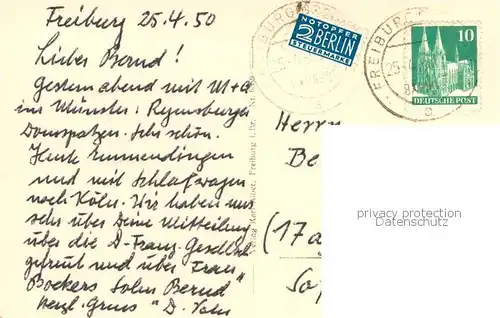 Freiburg 25.4.50
Lieber Bernd!
Gestern abend mit M+G
im Münster: Regensburger
Domspatzen. Sehr schön.
Heute Emmendingen
und mit Schlafwagen
nach Köln. Wir haben uns
sehr über Deine Mitteilung
über die D-Franz. Gesellsch.
gefreut und über Frau
Boekers Sohn Bernd"
Herzl. Gruss" D.
NOTOPFER
2 BERLIN
STEUERMARKE
FREIBURG
25
10
DEUTSCHE POST
Herrn
Be
(17a
privacy protection
Datenschutz
Verlag Freiburg i. Br.